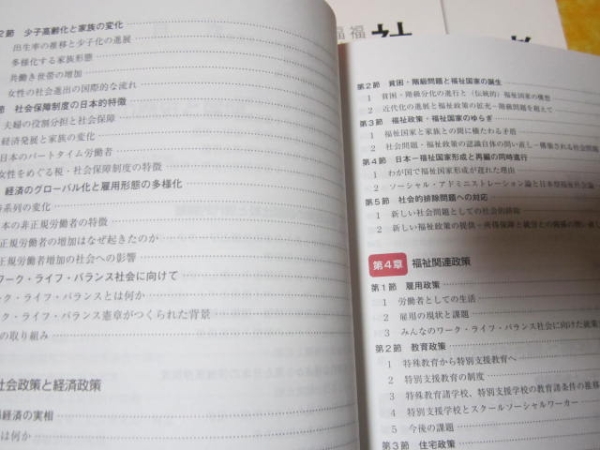 福 福
社
2節 少子高齢化と家族の変化
出生率の推移と少子化の進展
多様化する家族形態
共働き世帯の増加
女性の社会進出の国際的な流れ
節 社会保障制度の日本的特徴
夫婦の役割分担と社会保障
経済発展と家族の変化
日本のパートタイム労働者
女性をめぐる税・社会保障制度の特徴
経済のグローバル化と雇用形態の多様化
時系列の変化
本の非正規労働者の特徴
正規労働者の増加はなぜ起きたのか
正規労働者の増加の社会への影響
ワーク・ライフ・バランス社会に向けて
ーク・ライフ・バランスとは何か
ーク・ライフ・バランス憲章がつくられた背景
の取り組み
社会政策と経済政策
経済の実相
は何か
第2節 貧困・階級問題と福祉国家の誕生
1 貧困・階級分化の進行と（伝統的）福祉国家の構想
2 近代化の進展と福祉政策の拡充―階級問題を超えて
第3節 福祉政策・福祉国家のゆらぎ
1 福祉国家と家族との間に横たわる矛盾
2 社会問題・福祉政策の認識自体の問い直し
第4節 日本―福祉国家形成と再編の同時進行
1 わが国で福祉国家形成が遅れた理由
2 ソーシャル・アドミニストレーション論と日本型福祉社会論
第5節 社会的排除問題への対応
1 新しい社会問題としての社会的排除
2 新しい福祉政策の提供
第4章 福祉関連政策
第1節 雇用政策
1 労働者としての生活
2 雇用の現状と課題
3 みんなのワーク・ライフ・バランス社会に向けた政策
第2節 教育政策
1 特殊教育から特別支援教育へ
2 特別支援教育の制度
3 特殊教育諸学校、特別支援学校の教育諸条件の推移
4 特別支援学校とスクールソーシャルワーカー
5 今後の課題
第3節 住宅政策